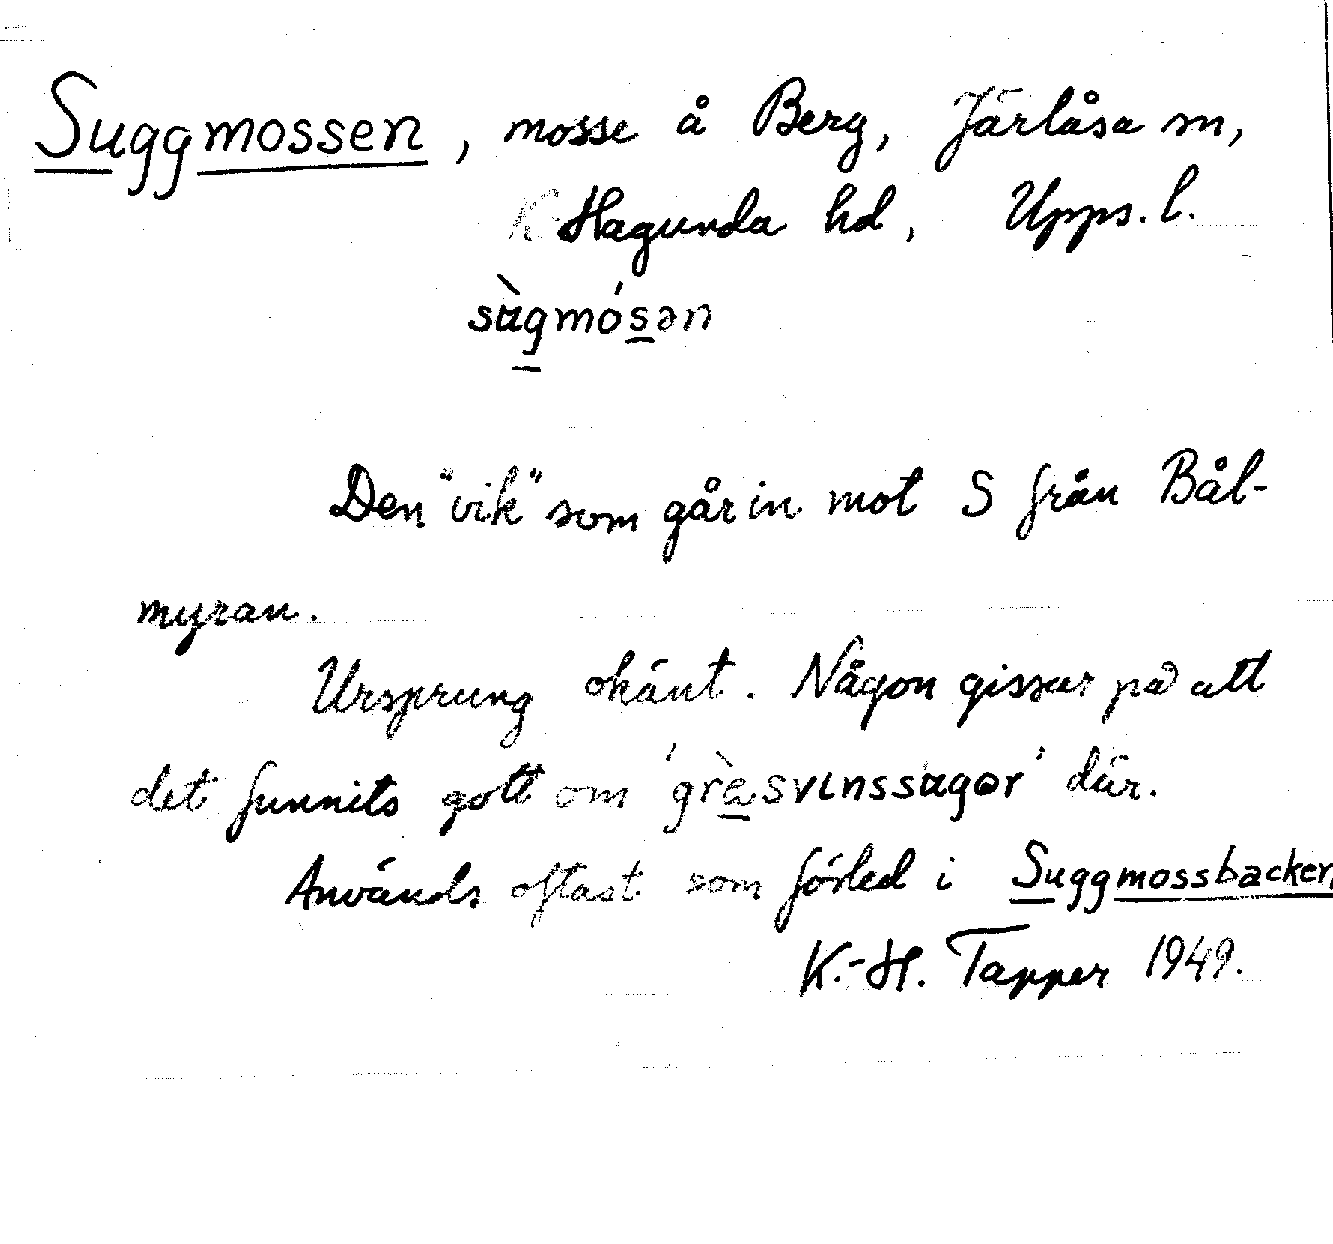 Suggmossen, mosse å Berg, Järlåsa sn,
Hagunda hd, Upps. l.
sùg̲mós̲ən
Den "vik" som går in mot S från Bål-
myran.
Ursprung okänt. Någon gissar på att
det funnits gott om 'grè̲svinssugər' där.
Används oftast som förled i Suggmossbacken
K.-H. Tapper 1949.